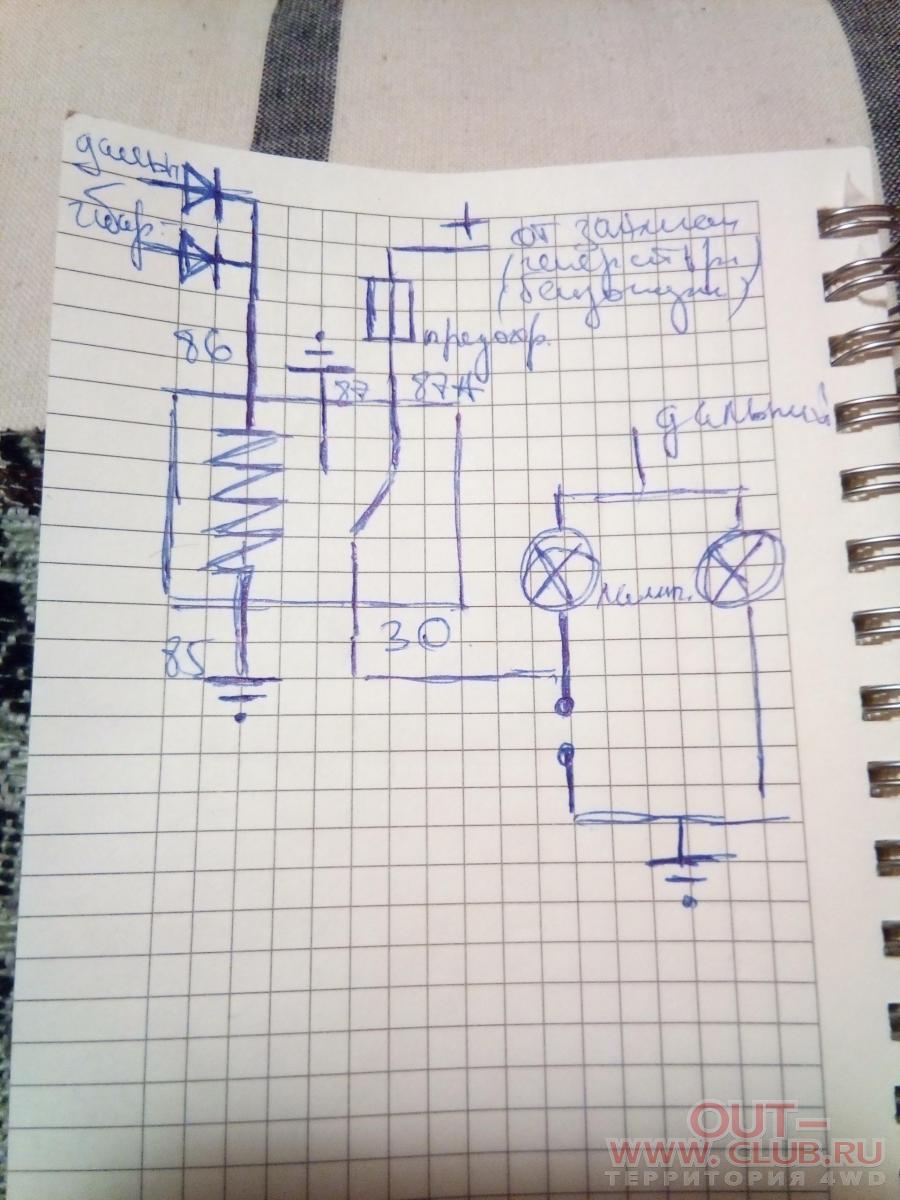 дальн
габар
+
от зажиган
(генератора)
(бензонасос)
предохр.
86
87
87А
дальний
ламп.
30
85
OUT-
WWW.CLUB.RU
ТЕРРИТОРИЯ 4WD